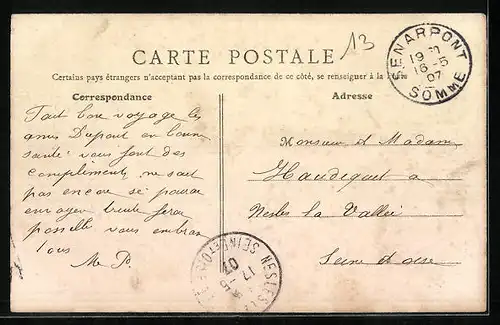 CARTE POSTALE
13
Certains pays étrangers n'acceptant pas la correspondance de ce côté, se renseigner à la Poste
Correspondance
Adresse
SENARPONT
19
16-5
07
SOMME
fait bon voyage les
amis Dupont en bonne
santé vous font des
compliments ne sait
pas encore si pourra
envoyer truite fera
possible vous embras
tous
M. P.
Monsieur et Madame
Haudiquet a
Nesles la Vallée
Seine et oise
NESLES
17-5
07
SEINE-ET-OISE